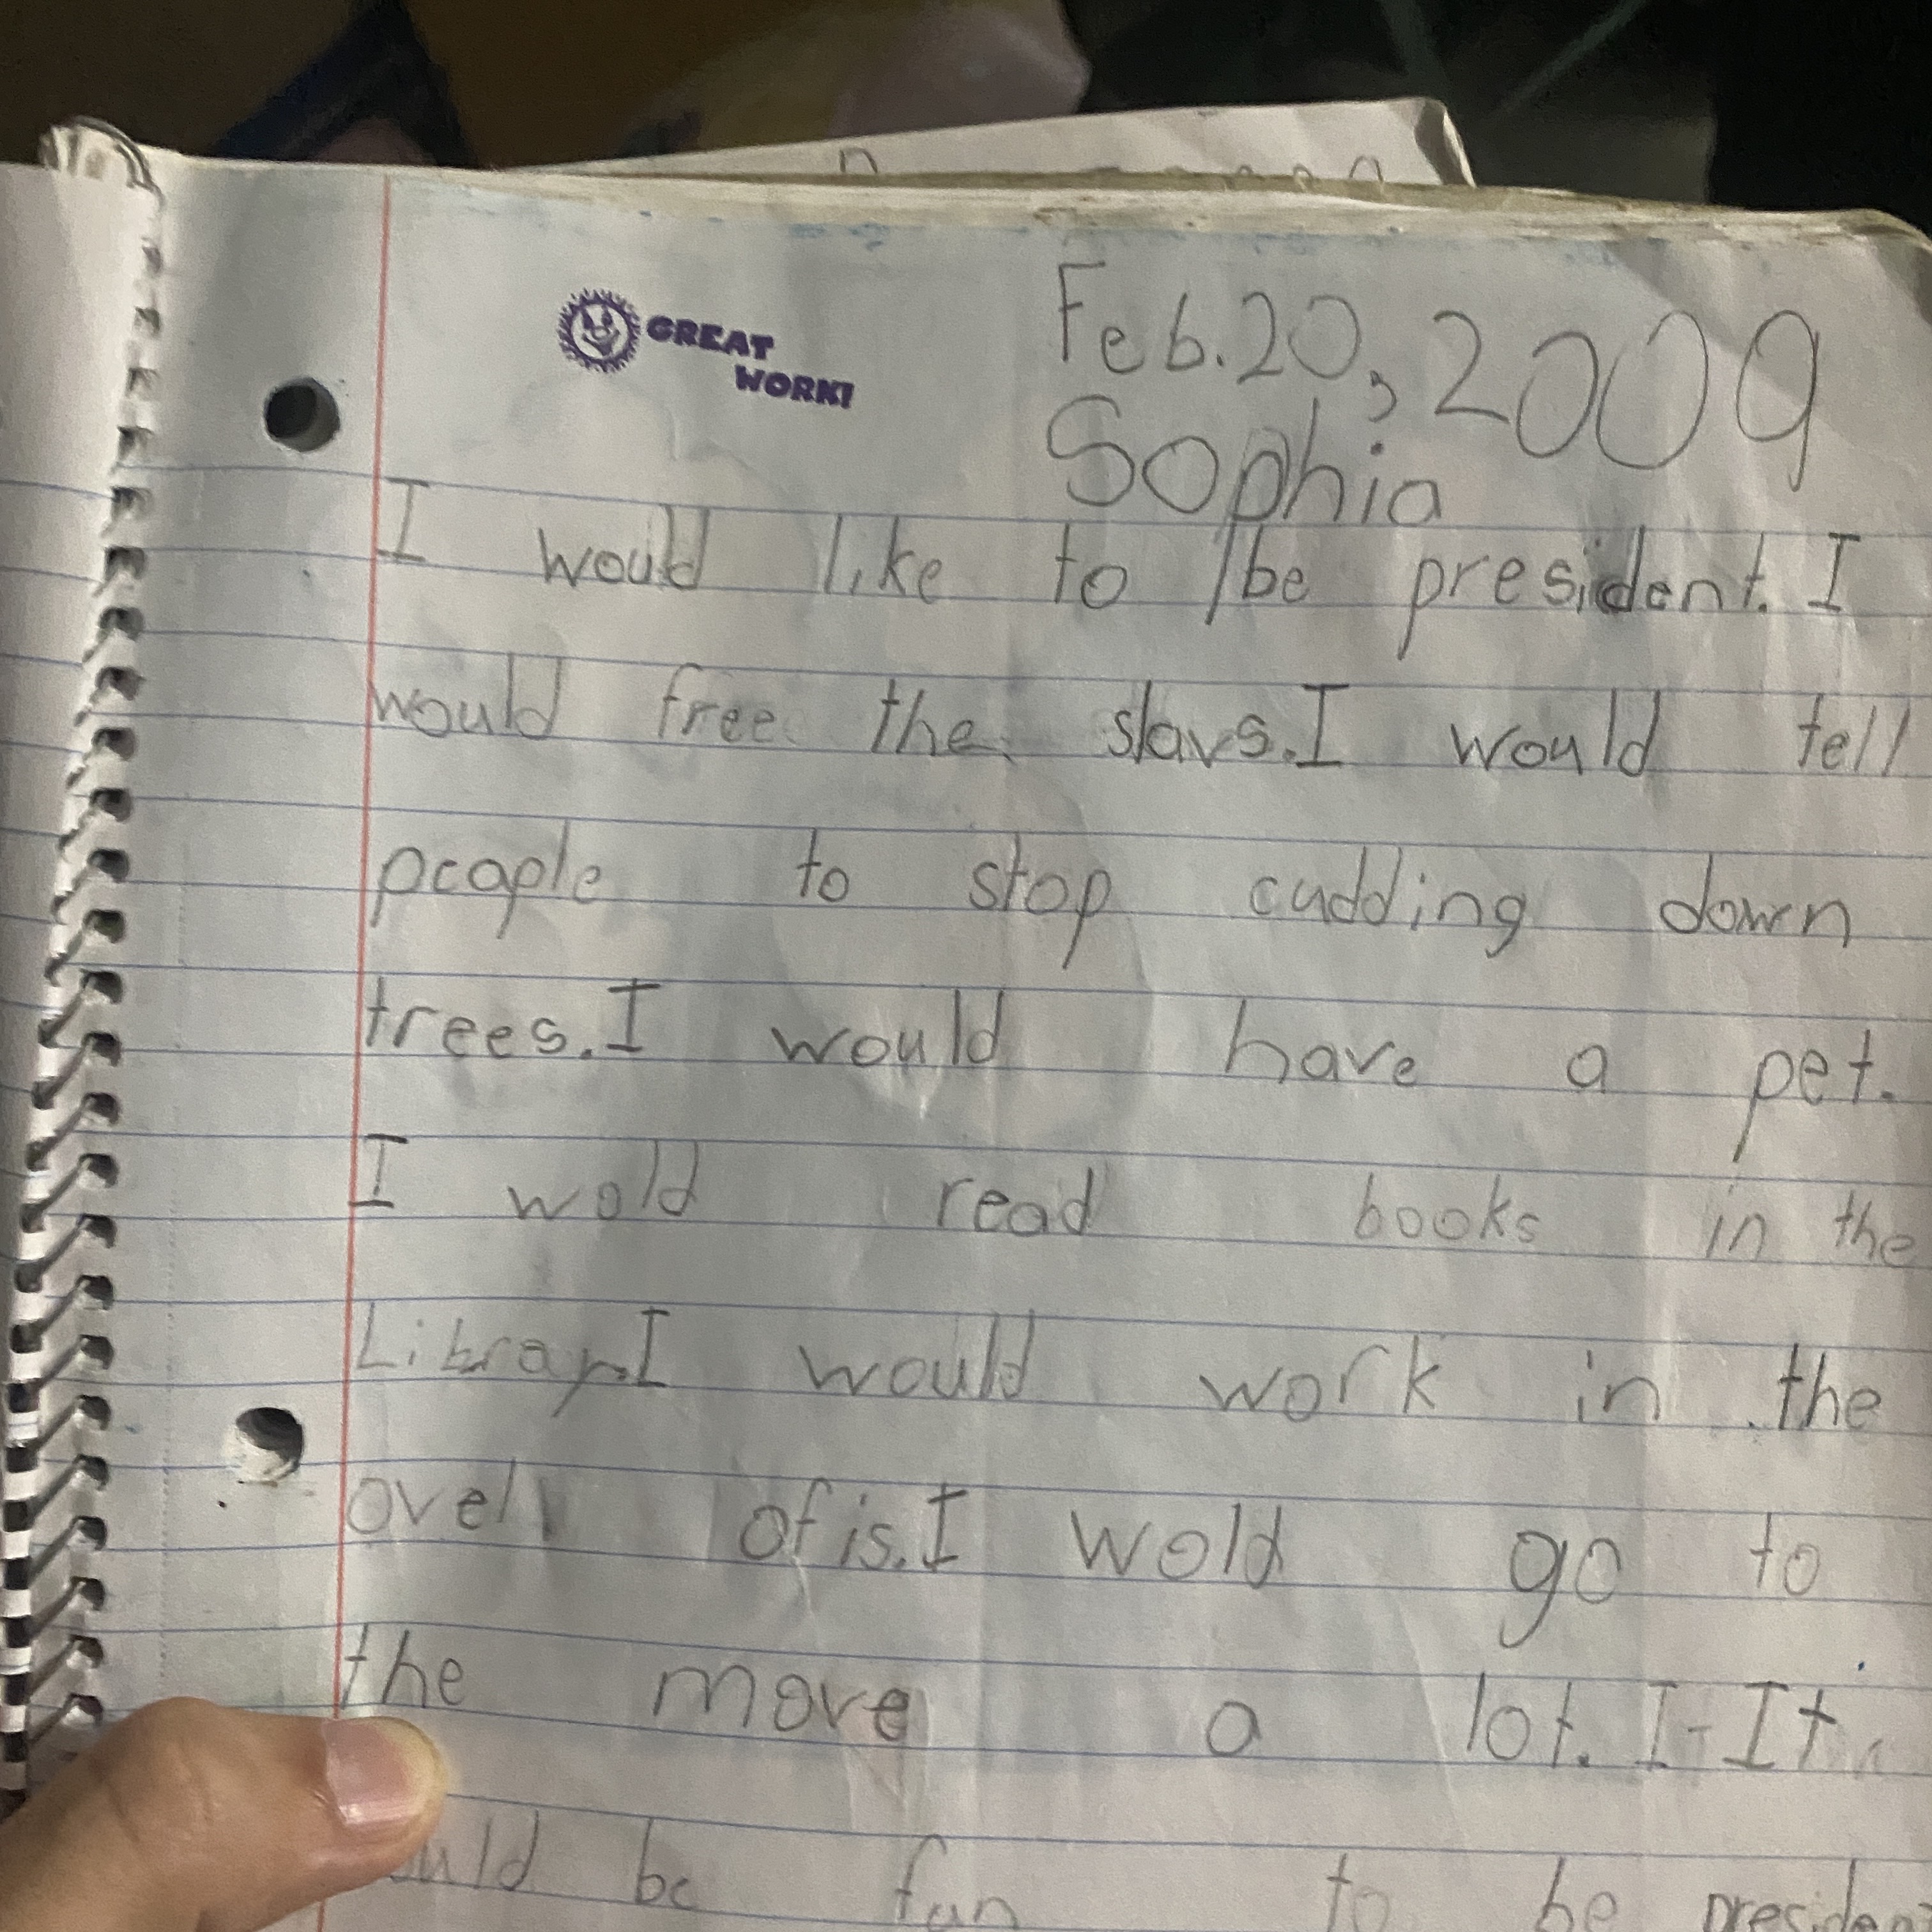 GREAT
WORK!
Feb. 20, 2009
Sophia
I would like to be president. I
would free the slavs. I would tell
peaple to stop cudding down
trees. I would have a pet.
I wold read books in the
Library. I would work in the
ovel ofis. I wold go to
the move a lot. I-It
be fun to be